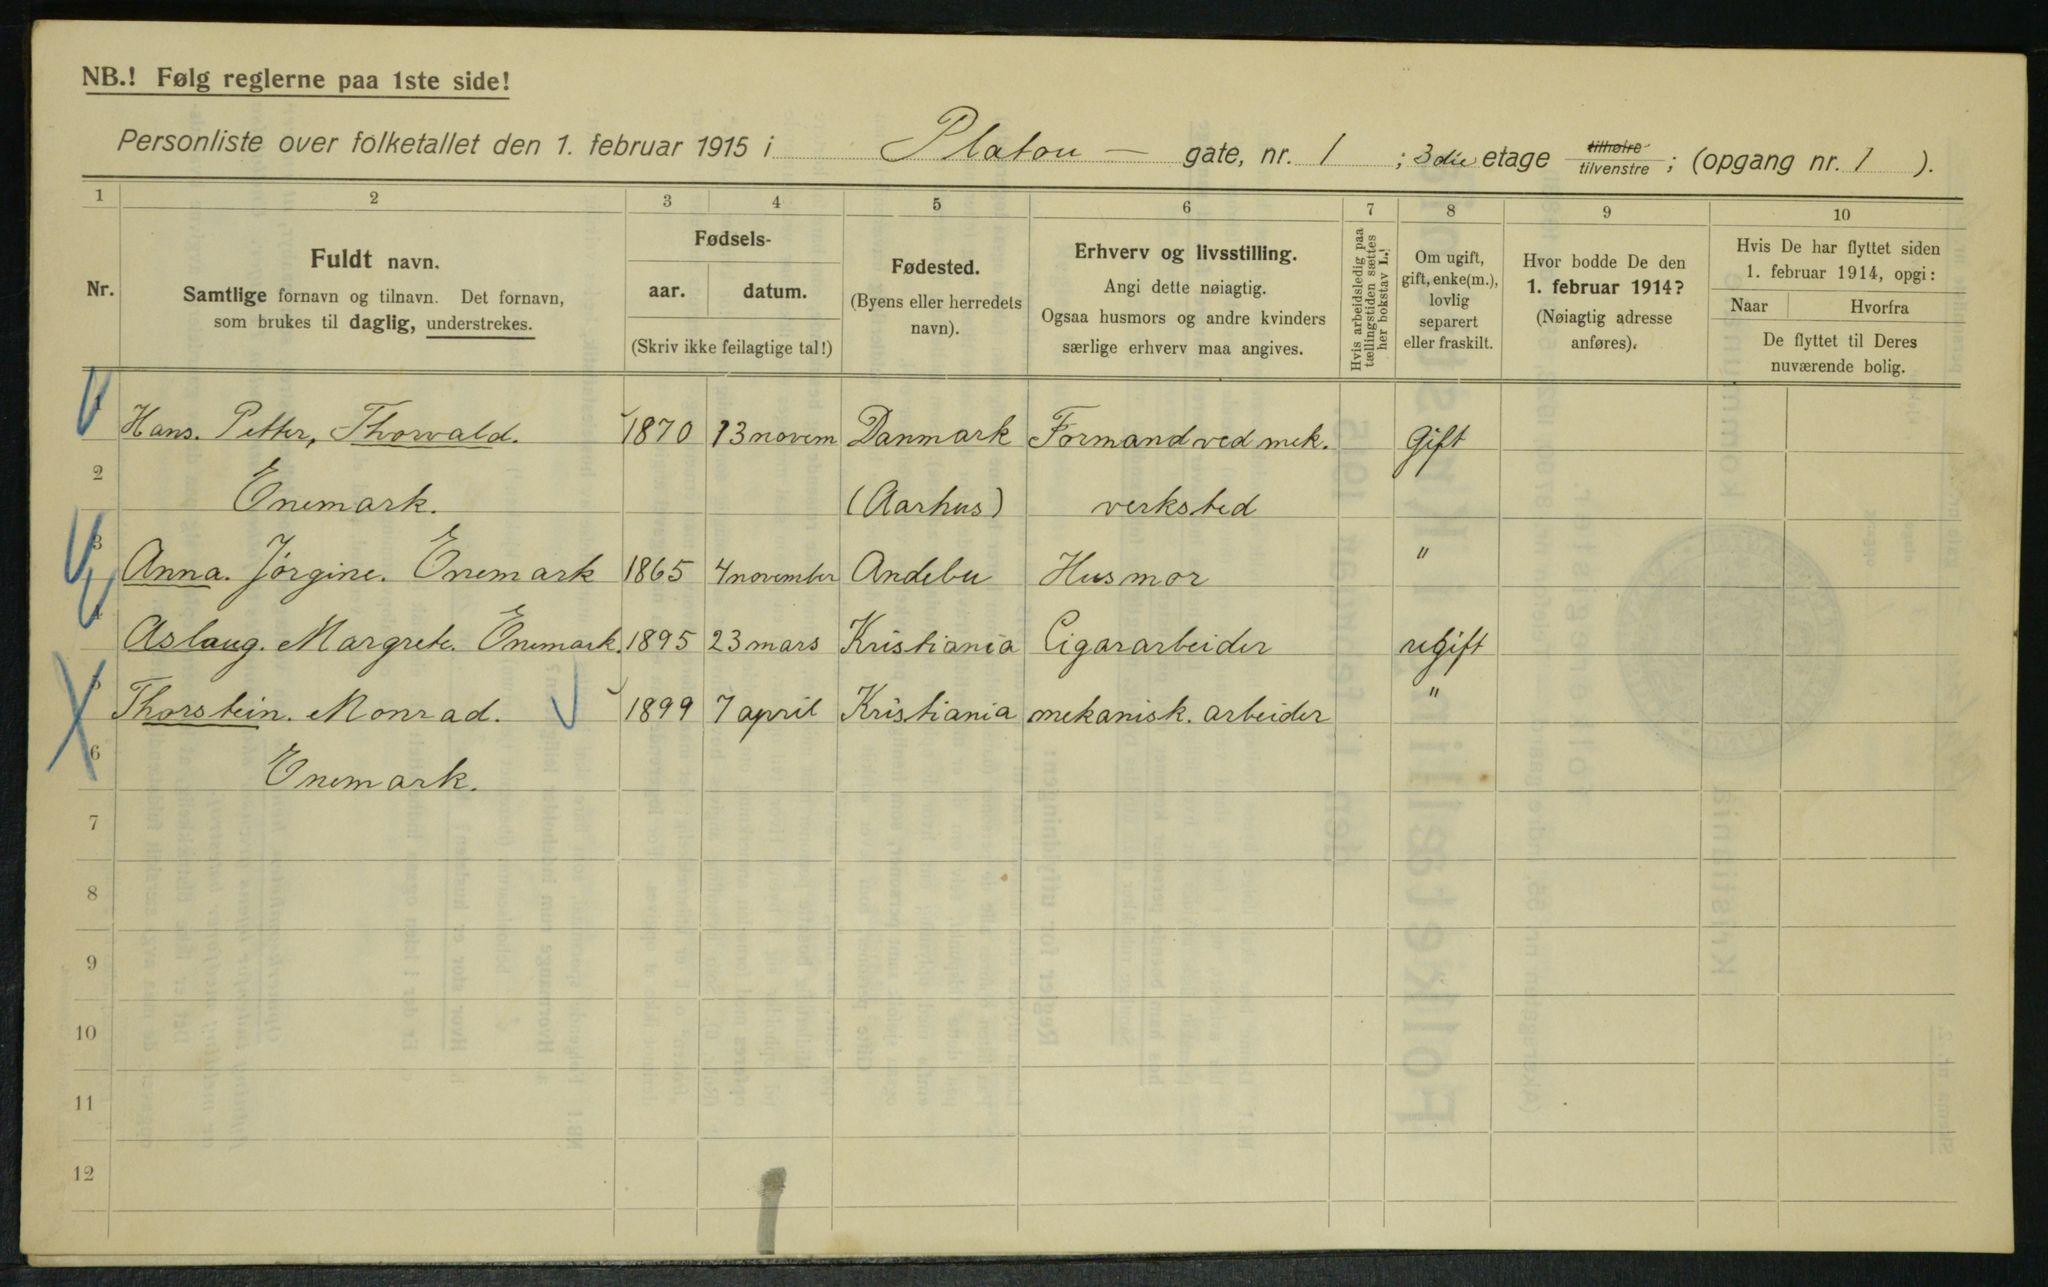 NB.! Følg reglerne paa 1ste side!
Personliste over folketallet den 1. februar 1915 i Platou – gate, nr. 1 ; 3die etage tilhøire tilvenstre ; (opgang nr. 1 ).
1 2 3 4 5 6 7 8 9 10
Nr.
Fuldt navn.
Samtlige fornavn og tilnavn. Det fornavn,
som brukes til daglig, understrekes.
Fødsels-
aar. datum.
(Skriv ikke feilagtige tal!)
Fødested.
(Byens eller herredets
navn).
Erhverv og livsstilling.
Angi dette nøiagtig.
Ogsaa husmors og andre kvinders
særlige erhverv maa angives.
Hvis arbeidsledig paa
tællingstiden sættes
her bokstav L.!
Om ugift,
gift, enke(m.),
lovlig
separert
eller fraskilt.
Hvor bodde De den
1. februar 1914?
(Nøiagtig adresse
anføres).
Hvis De har flyttet siden
1. februar 1914, opgi:
Naar Hvorfra
De flyttet til Deres
nuværende bolig.
1 Hans. Petter, Thorvald. 1870 13 novem Danmark Formand ved mek. Gift
2 Enemark. (Aarhus) verksted
3 Anna. Jørgine. Enemark 1865 4 november Andebu Husmor "
4 Aslaug. Margrete. Enemark. 1895 23 mars Kristiania Cigararbeider ugift
5 Thorstein. Monrad. 1899 7 april Kristiania mekanisk. arbeider "
6 Enemark.
7
8
9
10
11
12